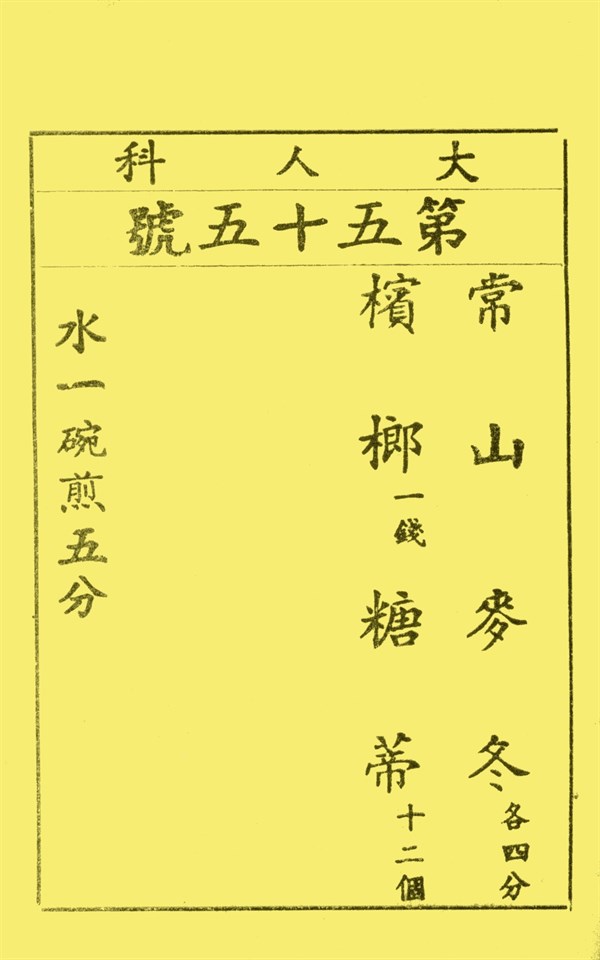 大人科
第五十五號
常山麥冬各四分
檳榔一錢糖蒂十二個
水一碗煎五分